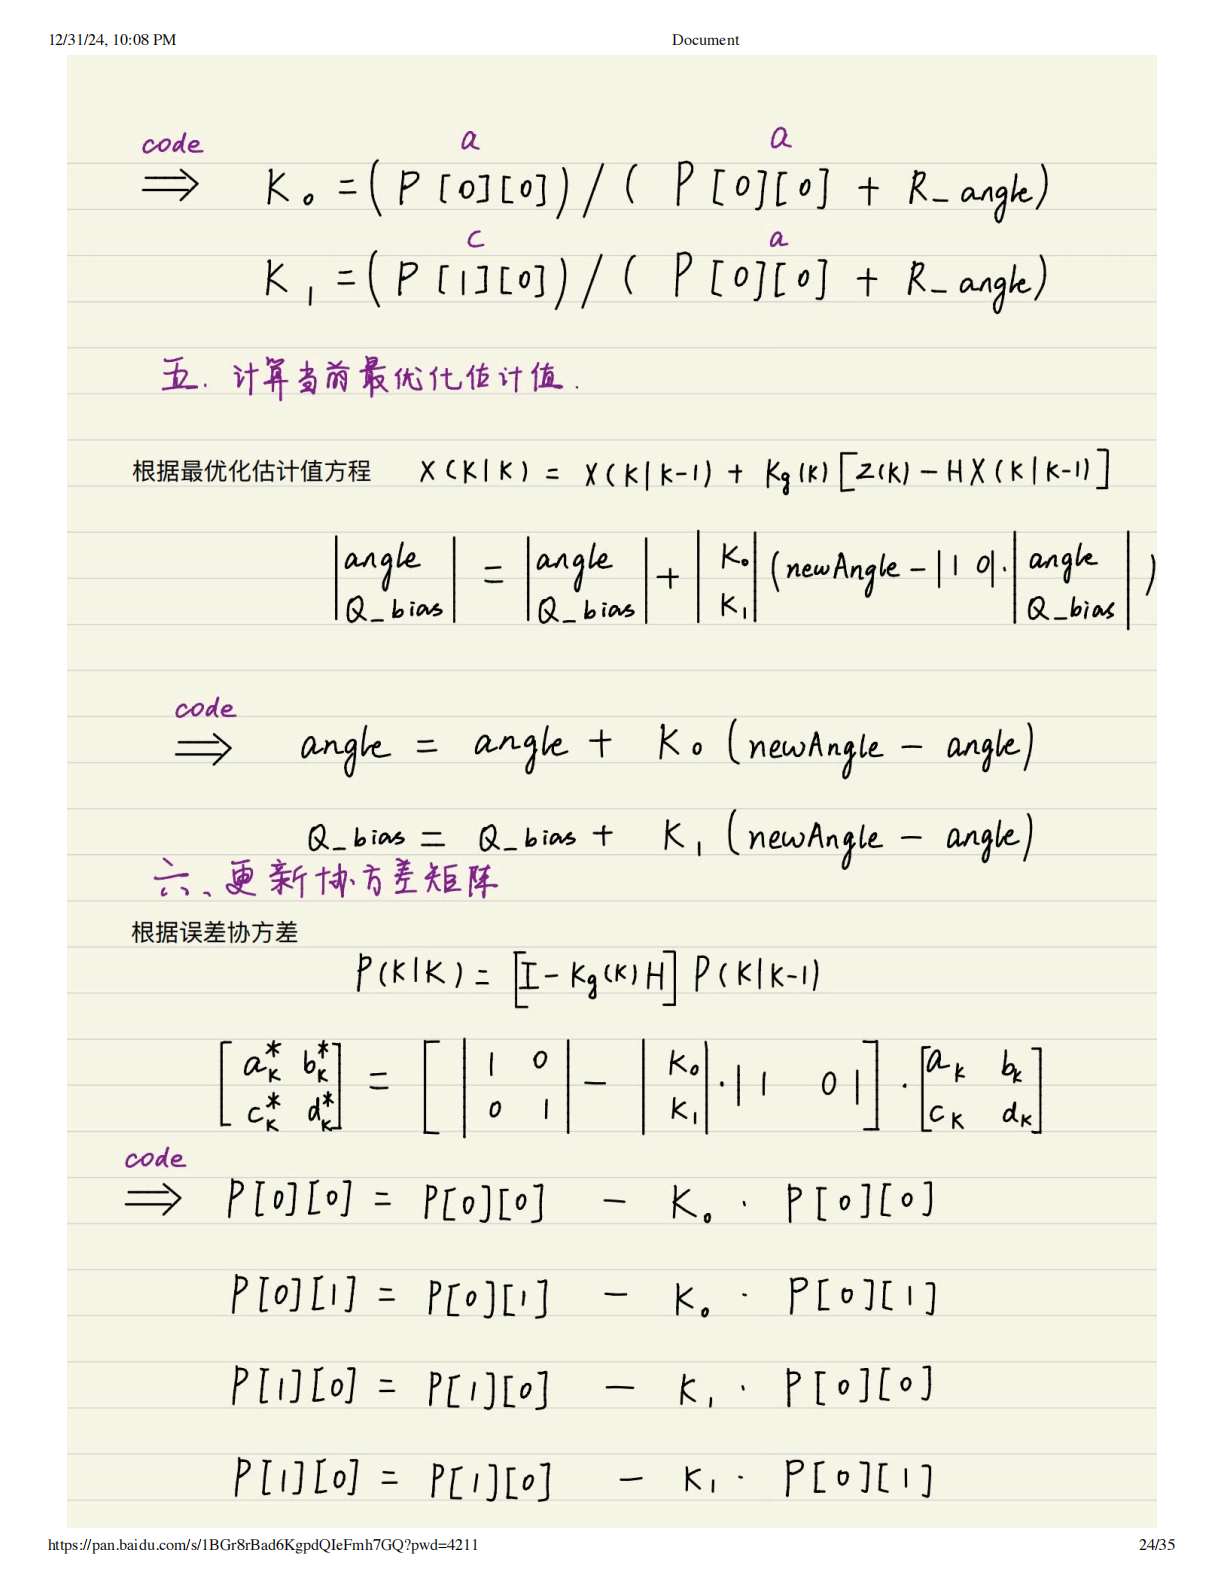 12/31/24, 10:08 PM Document
code a a
⟹ K₀ = ( P [0][0] ) / ( P [0][0] + R_angle )
c a
K₁ = ( P [1][0] ) / ( P [0][0] + R_angle )
五. 计算当前最优化估计值.
根据最优化估计值方程 X(K|K) = X(K|K-1) + Kg(K) [Z(K) - HX(K|K-1)]
|angle| = |angle| + |K₀| (newAngle - |1 0| · |angle|)
|Q_bias| |Q_bias| |K₁| |Q_bias|
code
⟹ angle = angle + K₀ (newAngle - angle)
Q_bias = Q_bias + K₁ (newAngle - angle)
六、更新协方差矩阵
根据误差协方差
P(K|K) = [I - Kg(K)H] P(K|K-1)
[a*ₖ b*ₖ] = [ |1 0| - |K₀| · |1 0| ] · [aₖ bₖ]
[c*ₖ d*ₖ] |0 1| |K₁| [cₖ dₖ]
code
⟹ P[0][0] = P[0][0] - K₀ · P[0][0]
P[0][1] = P[0][1] - K₀ · P[0][1]
P[1][0] = P[1][0] - K₁ · P[0][0]
P[1][0] = P[1][0] - K₁ · P[0][1]
https://pan.baidu.com/s/1BGr8rBad6KgpdQIeFmh7GQ?pwd=4211 24/35